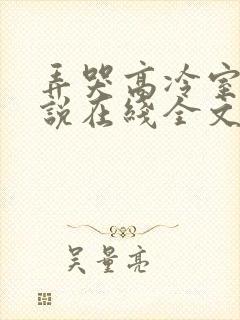 弄哭高冷室
說在綫全文
吴量亮